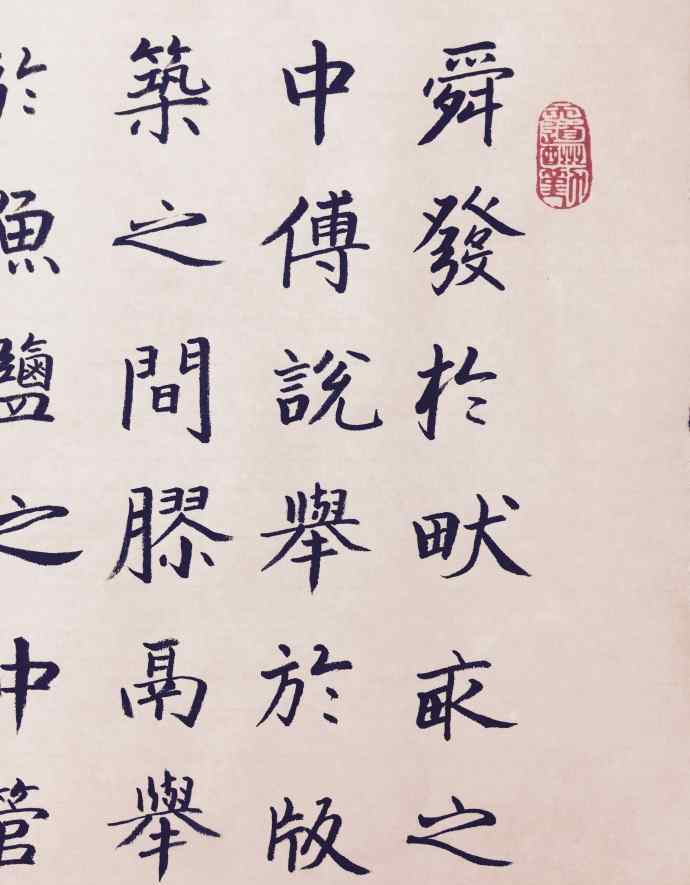 舜發於畎畝之
中傅說舉於版
築之間膠鬲舉
於魚鹽之中管